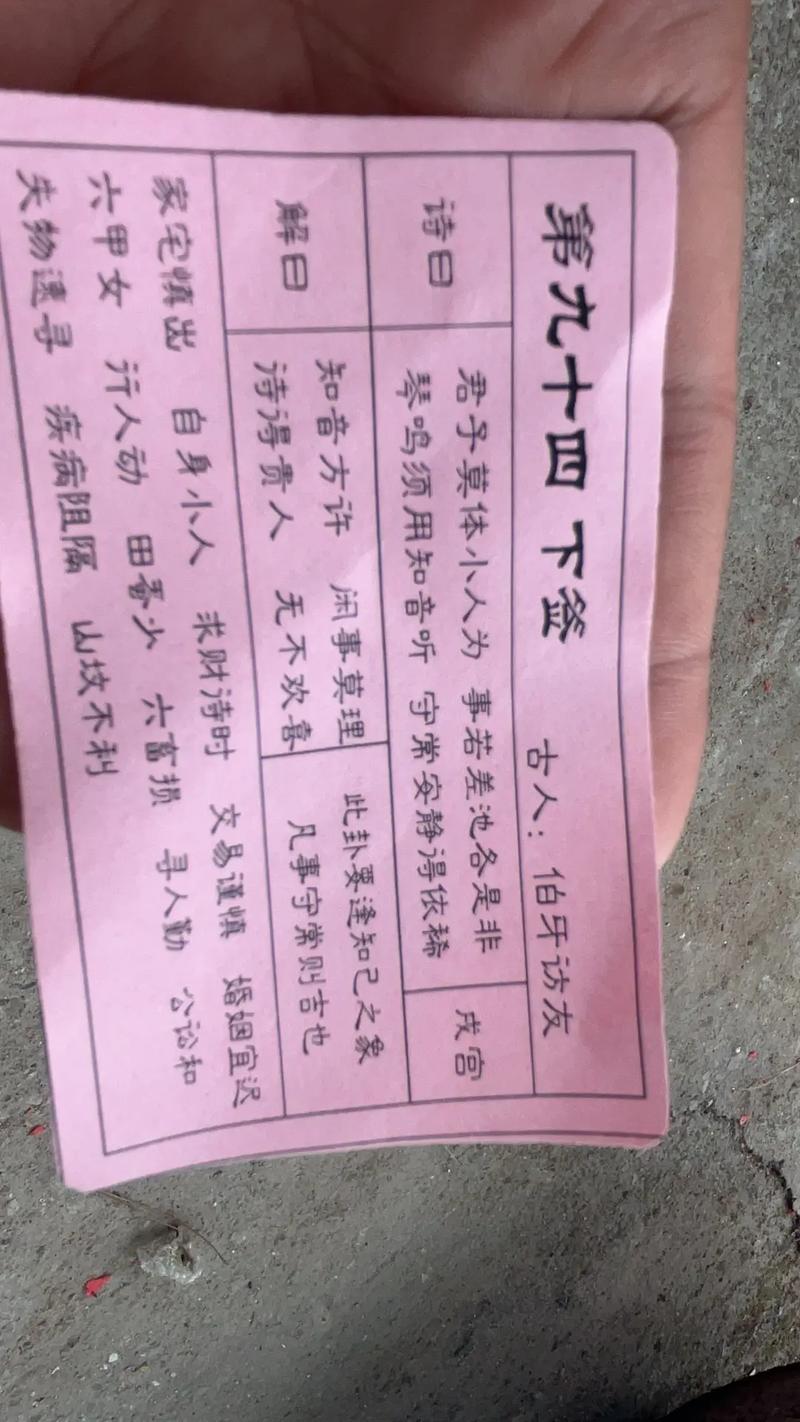 第九十四 下签 古人：伯牙访友
诗曰
君子莫体小人为 事若差池各是非
琴鸣须用知音听 守常安静得依稀
戌宫
解曰
知音方许 闲事莫理
诗得贵人 无不欢喜
此卦要逢知己之象
凡事守常则吉也
家宅慎出 自身小人 求财诗时 交易谨慎 婚姻宜迟
六甲女 行人动 田番少 六畜损 寻人勤 公讼和
失物速寻 疾病阻隔 山坟不利